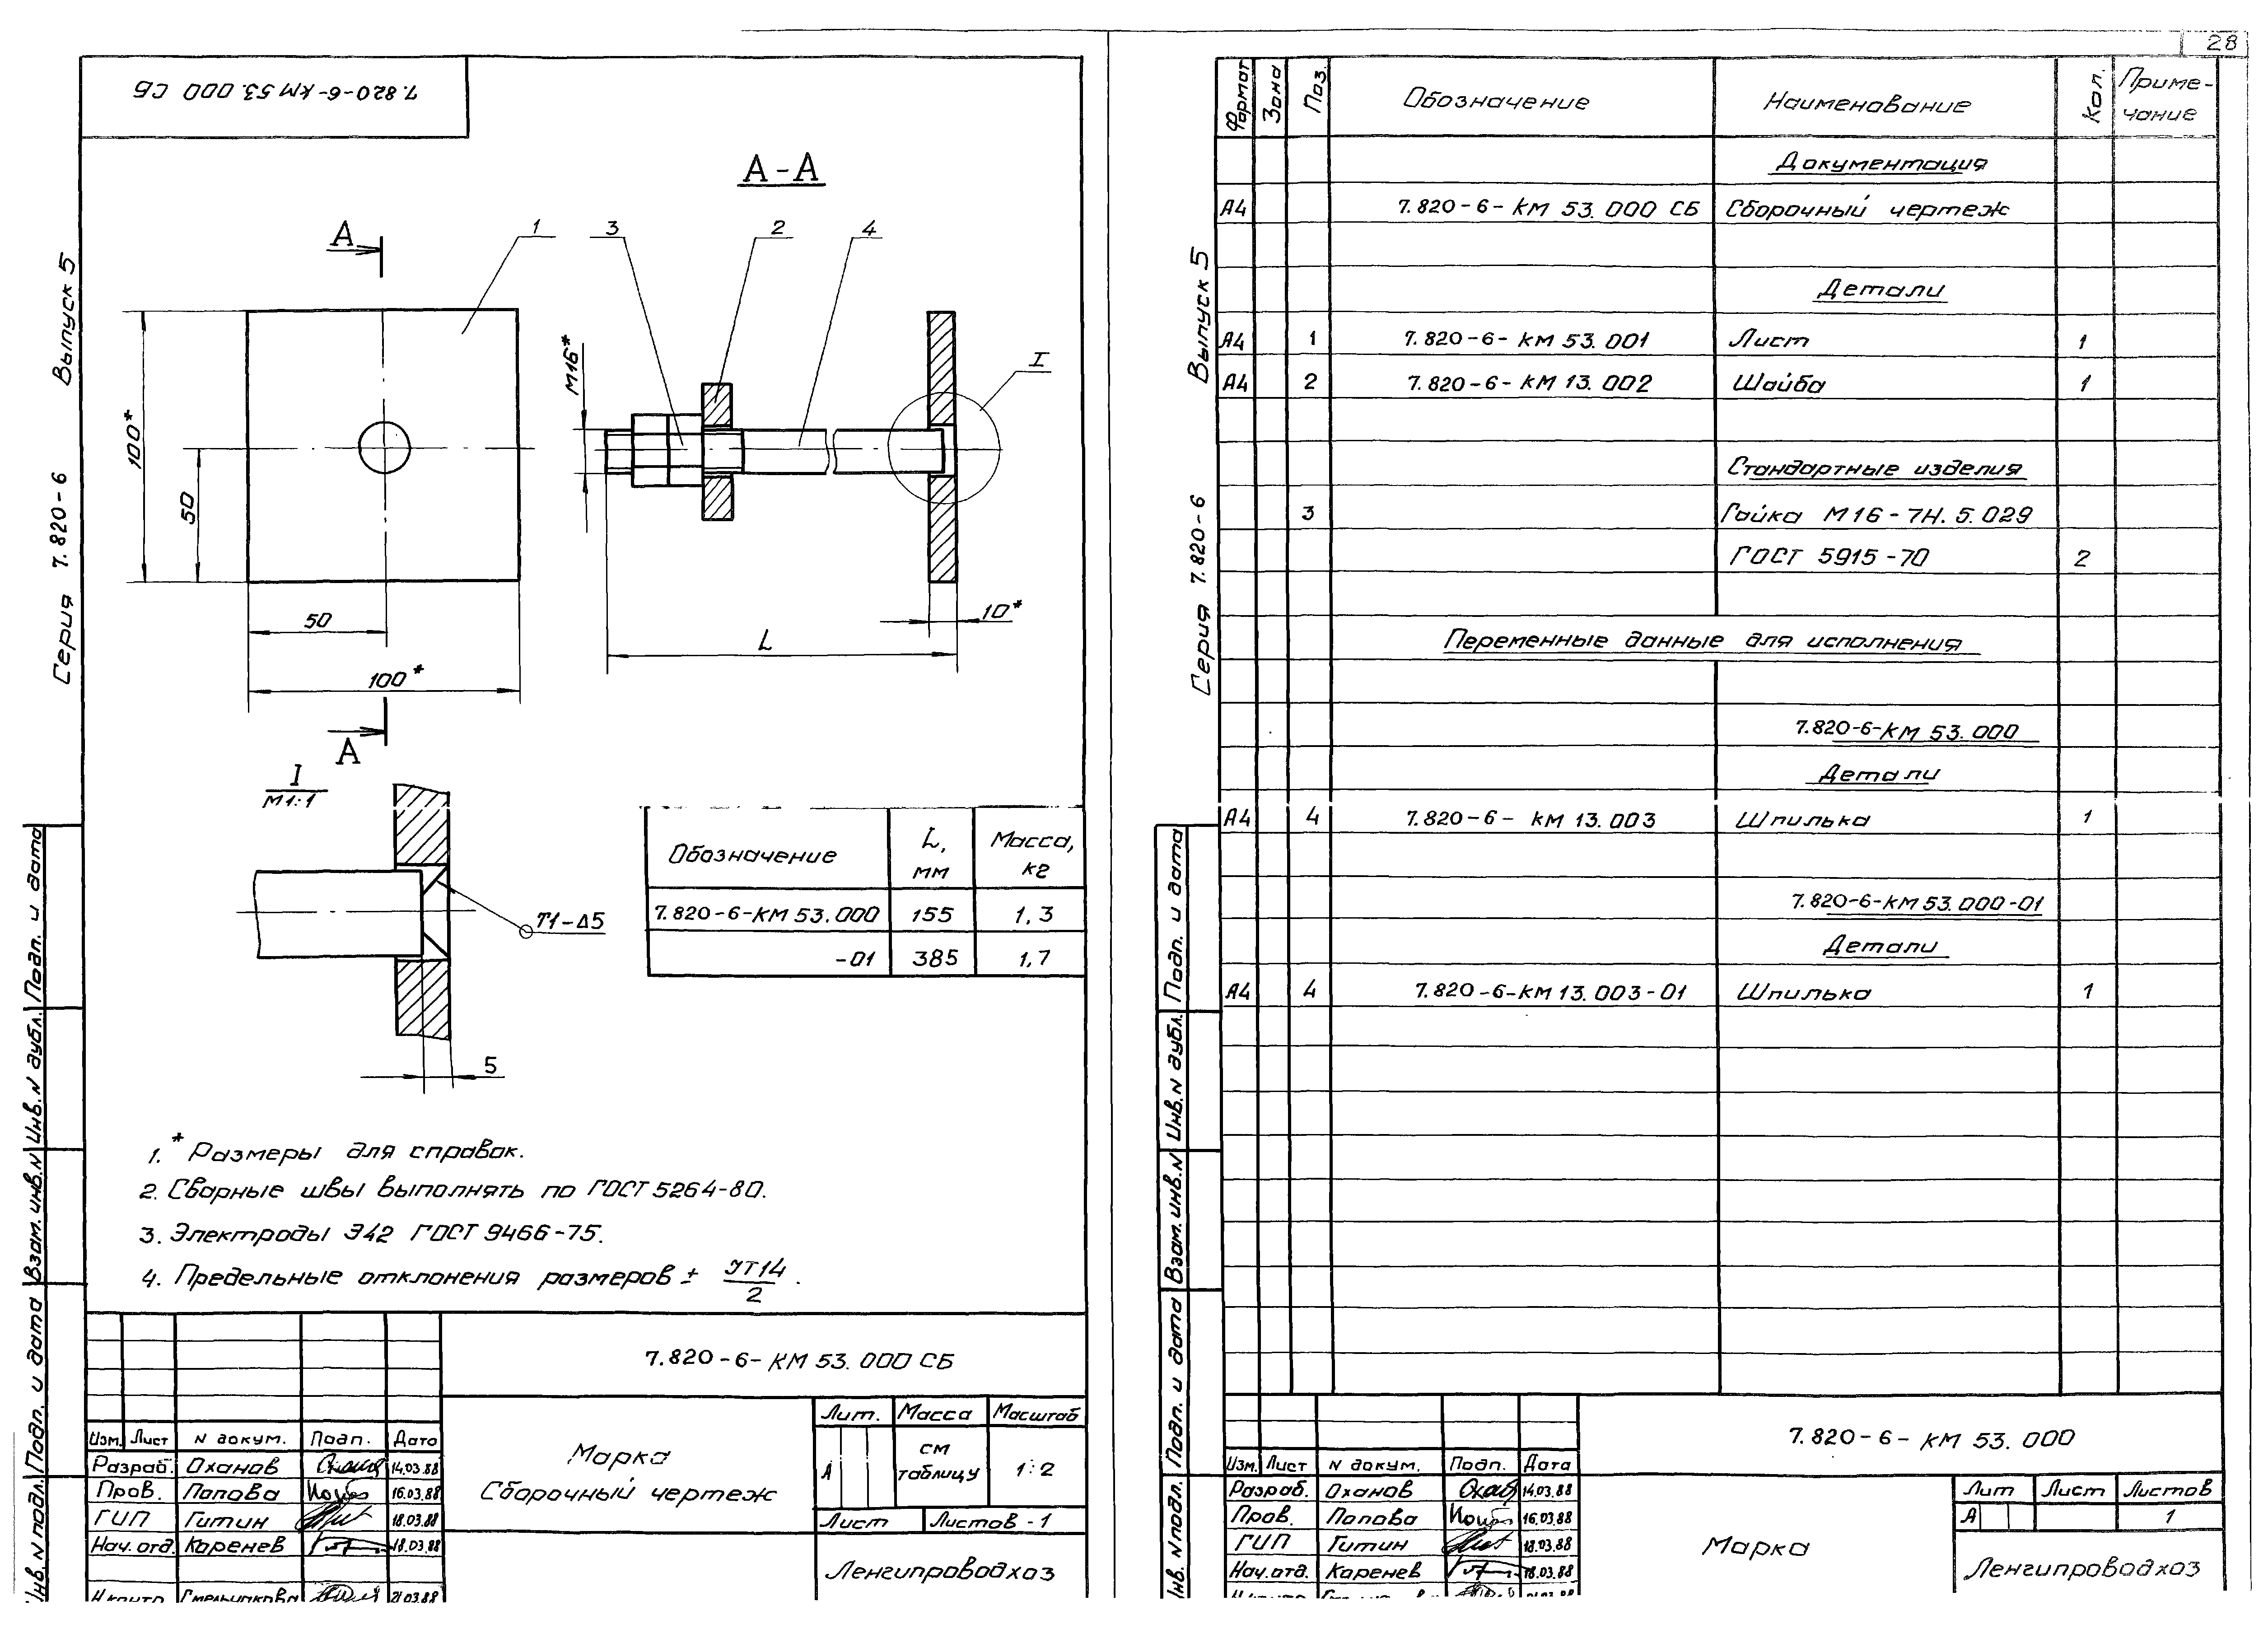 28
7.820-6-КМ 53.000 СБ
Серия 7.820-6 Выпуск 5
А-А
А
1
3
2
4
М16*
I
100*
50
50
100*
10*
L
А
I
М1:1
Т1-Δ5
5
Обозначение L, мм Масса, кг
7.820-6-КМ 53.000 155 1,3
-01 385 1,7
1. * Размеры для справок.
2. Сварные швы выполнять по ГОСТ 5264-80.
3. Электроды Э42 ГОСТ 9466-75.
4. Предельные отклонения размеров ± JT14/2.
7.820-6-КМ 53.000 СБ
Марка
Сборочный чертеж
Лит. Масса Масштаб
А см таблицу 1:2
Лист Листов - 1
Ленгипроводхоз
Изм. Лист N докум. Подп. Дата
Разраб. Оханов 14.03.88
Пров. Попова 16.03.88
ГИП Гитин 18.03.88
Нач. отд. Коренев 18.03.88
Н.контр 21.03.88
Инв. N подл. Подп. и дата Взам. инв. N Инв. N дубл. Подп. и дата
Серия 7.820-6 Выпуск 5
Формат Зона Поз. Обозначение Наименование Кол. Примечание
Документация
А4 7.820-6-КМ 53.000 СБ Сборочный чертеж
Детали
А4 1 7.820-6-КМ 53.001 Лист 1
А4 2 7.820-6-КМ 13.002 Шайба 1
Стандартные изделия
3 Гайка М16-7Н.5.029
ГОСТ 5915-70 2
Переменные данные для исполнения
7.820-6-КМ 53.000
Детали
А4 4 7.820-6-КМ 13.003 Шпилька 1
7.820-6-КМ 53.000-01
Детали
А4 4 7.820-6-КМ 13.003-01 Шпилька 1
7.820-6-КМ 53.000
Изм. Лист N докум. Подп. Дата
Разраб. Оханов 14.03.88
Пров. Попова 16.03.88
ГИП Гитин 18.03.88
Нач. отд. Коренев 18.03.88
Марка
Лит Лист Листов
А 1
Ленгипроводхоз
Инв. N подл. Подп. и дата Взам. инв. N Инв. N дубл. Подп. и дата